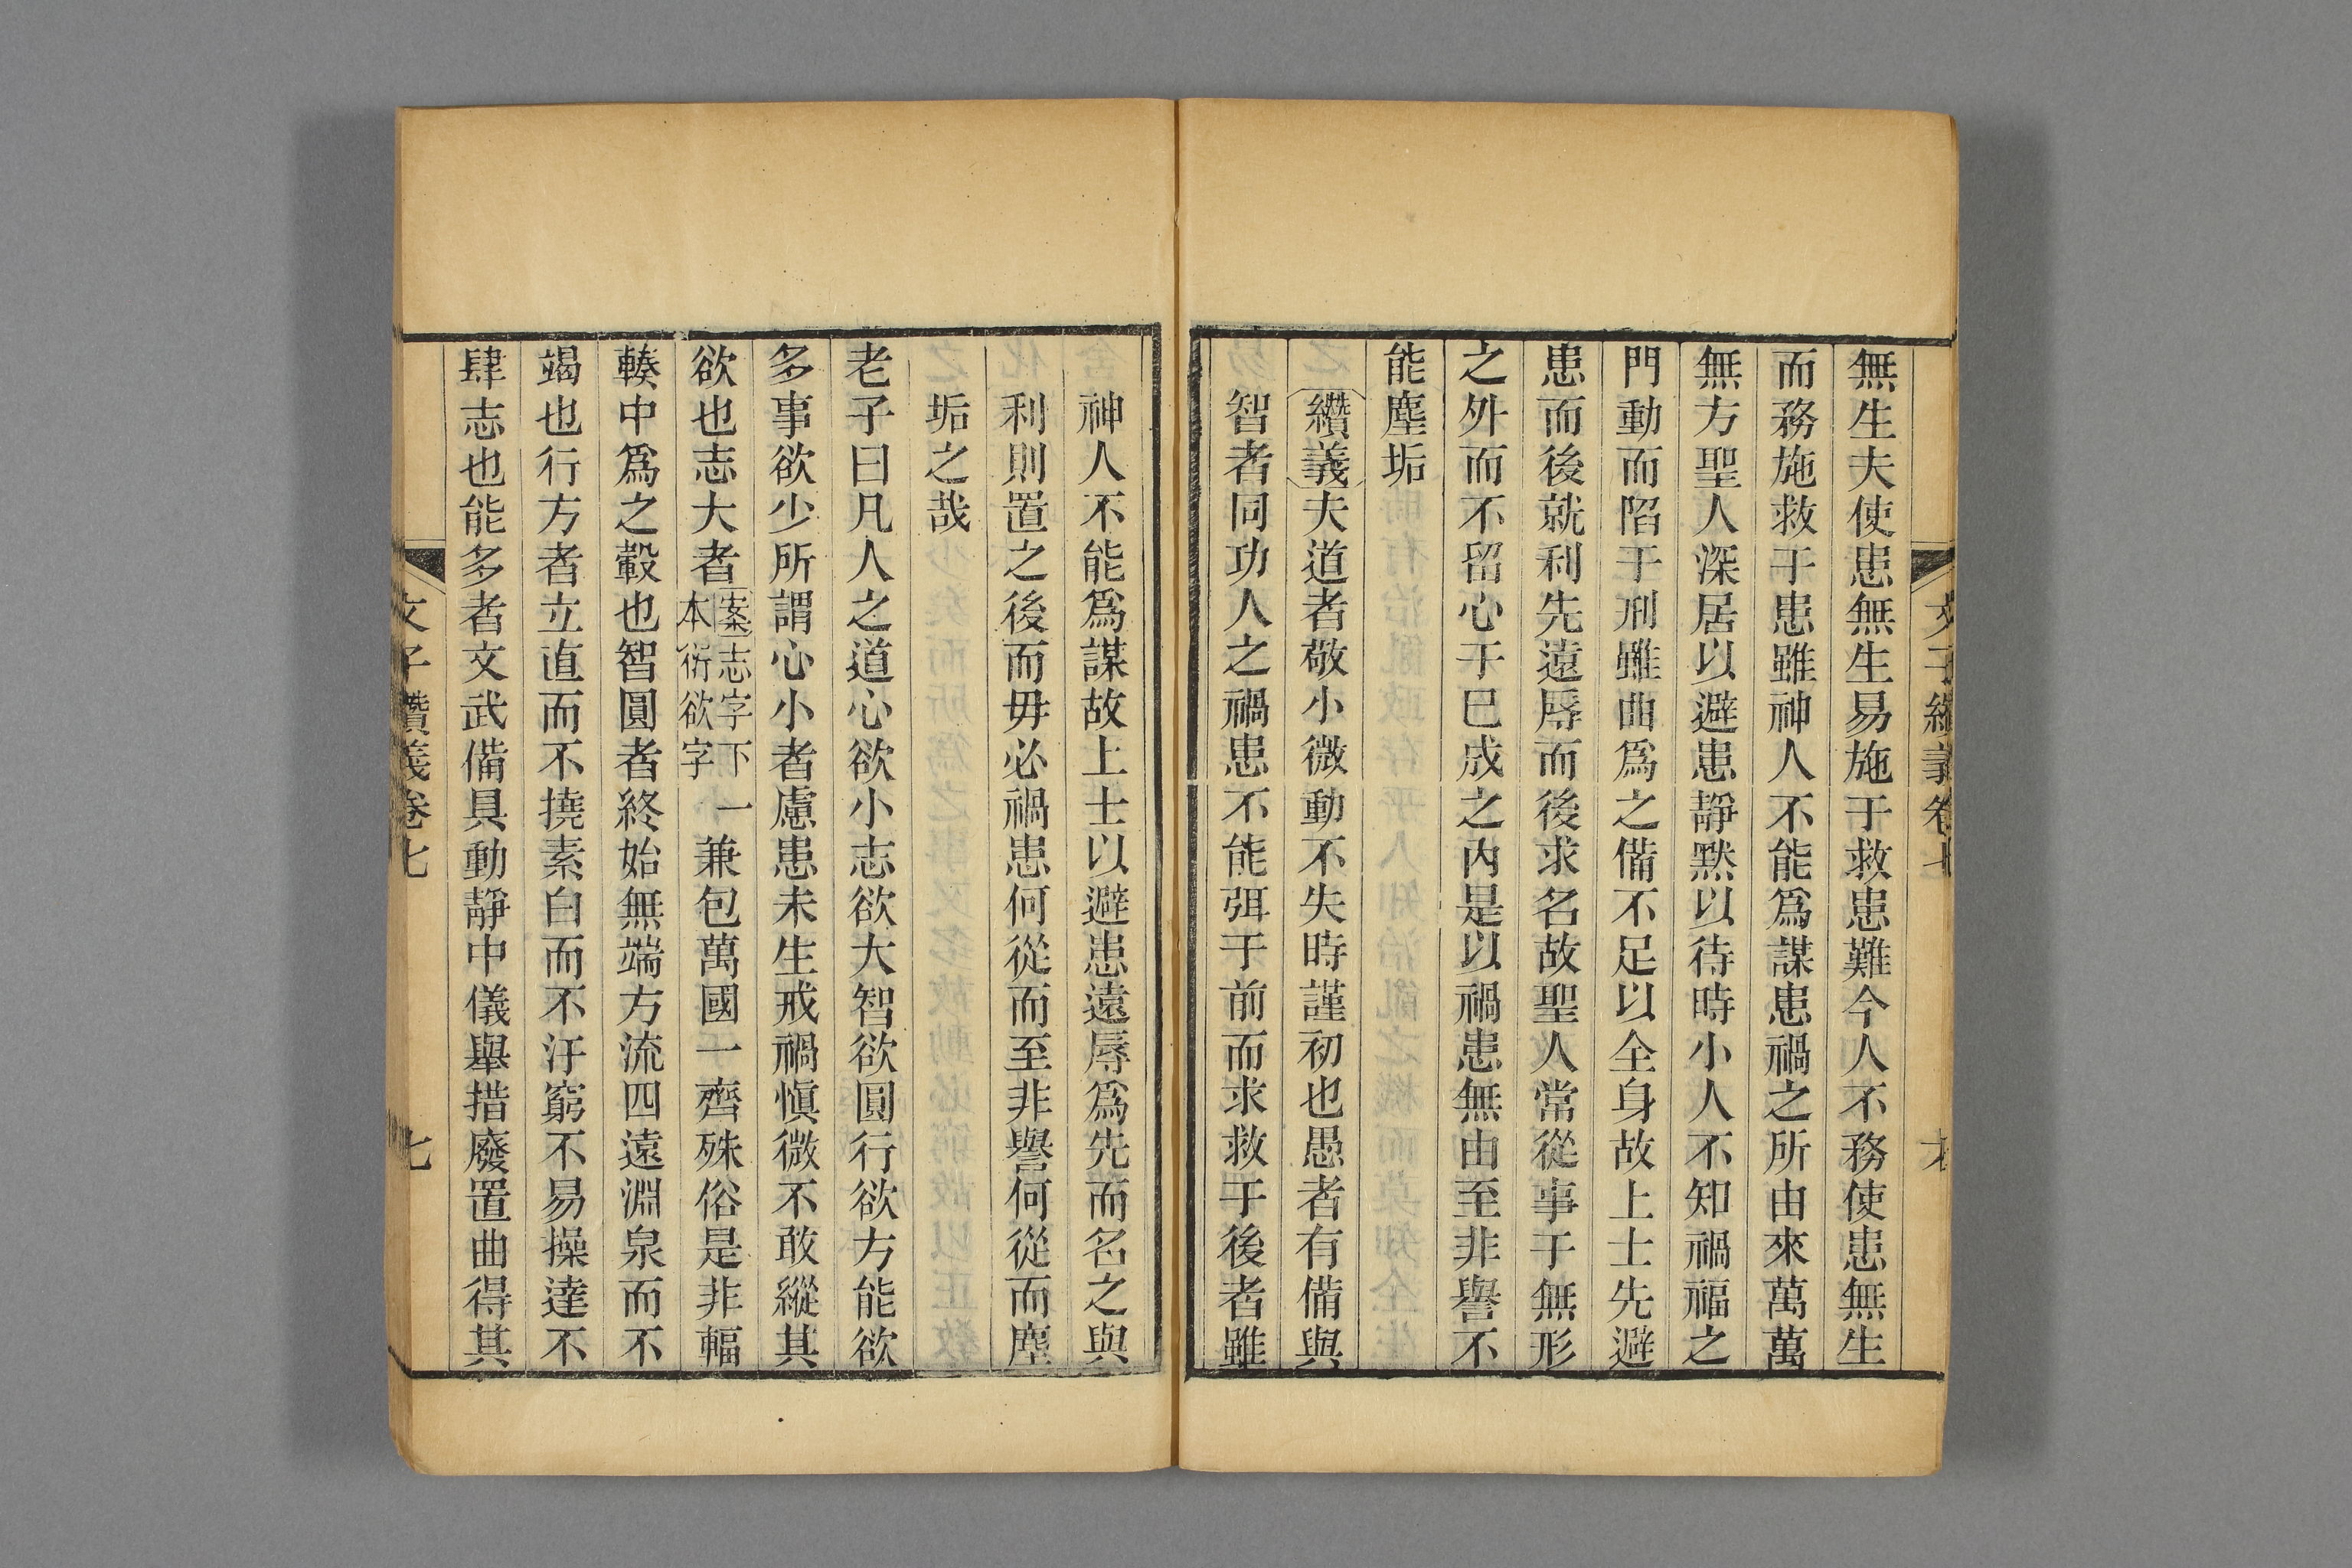 無生夫使患無生易施于救患難今人不務使患無生
而務施救于患雖神人不能爲謀患禍之所由來萬萬
無方聖人深居以避患靜默以待時小人不知禍福之
門動而陷于刑雖曲爲之備不足以全身故上士先避
患而後就利先遠辱而後求名故聖人常從事于無形
之外而不留心于巳成之內是以禍患無由至非譽不
能塵垢
纘義夫道者敬小微動不失時謹初也愚者有備與
智者同功人之禍患不能弭于前而求救于後者雖
神人不能爲謀故上士以避患遠辱爲先而名之與
利則置之後而毋必禍患何從而至非譽何從而塵
垢之哉
老子曰凡人之道心欲小志欲大智欲圓行欲方能欲
多事欲少所謂心小者慮患未生戒禍愼微不敢縱其
欲也志大者案志字下一本衍欲字兼包萬國一齊殊俗是非輻
輳中爲之轂也智圓者終始無端方流四遠淵泉而不
竭也行方者立直而不撓素白而不汙窮不易操達不
肆志也能多者文武備具動靜中儀舉措廢置曲得其
文子纘義卷七
七